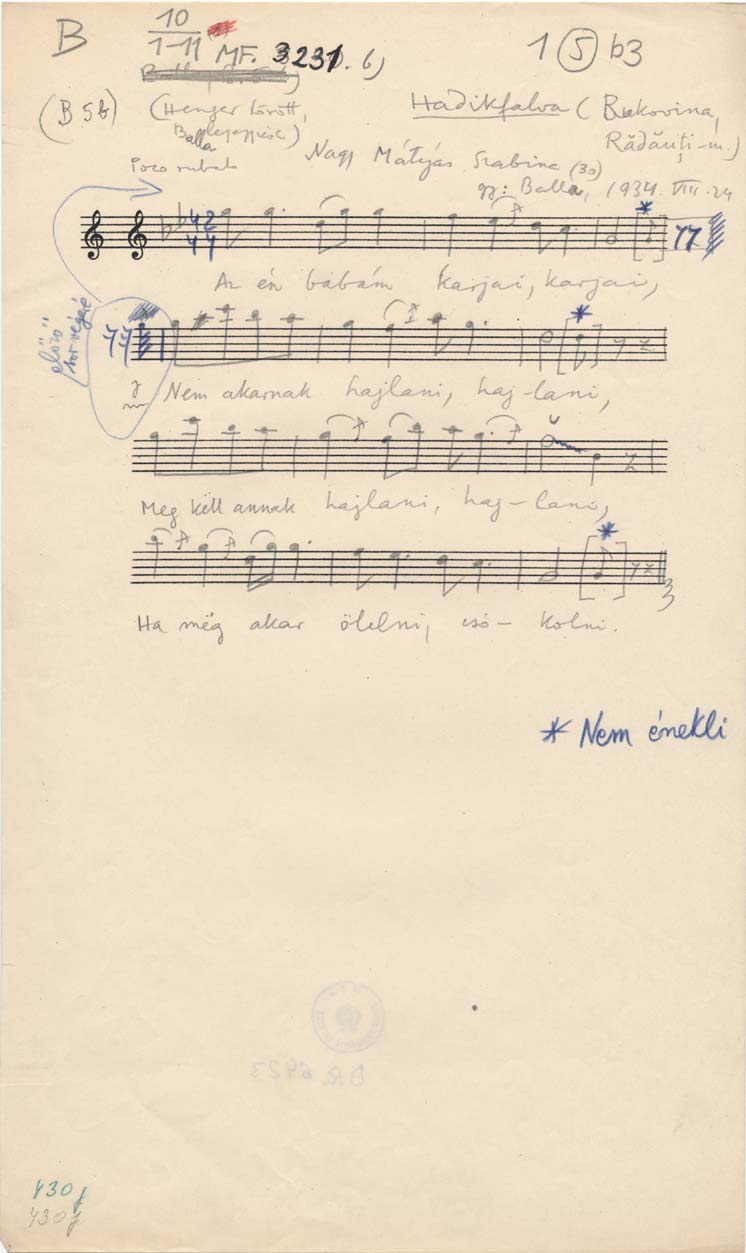 B
10
1-11 MF. 3231. b)
1 (5) b3
(B 5b)
(Henger törött,
Balla lejegyzése)
Hadikfalva (Bukovina,
Rădăuţi-m.)
Poco rubato
Nagy Mátyás Szabina (30)
gy: Balla, 1934. VIII. 24
Az én babám karjai, karjai,
előző
sor végére
Nem akarnak hajlani, haj-lani,
Meg kéll annak hajlani, haj-lani,
Ha még akar ölelni, csó- kolni.
* Nem énekli
BR 6423
430j
430j